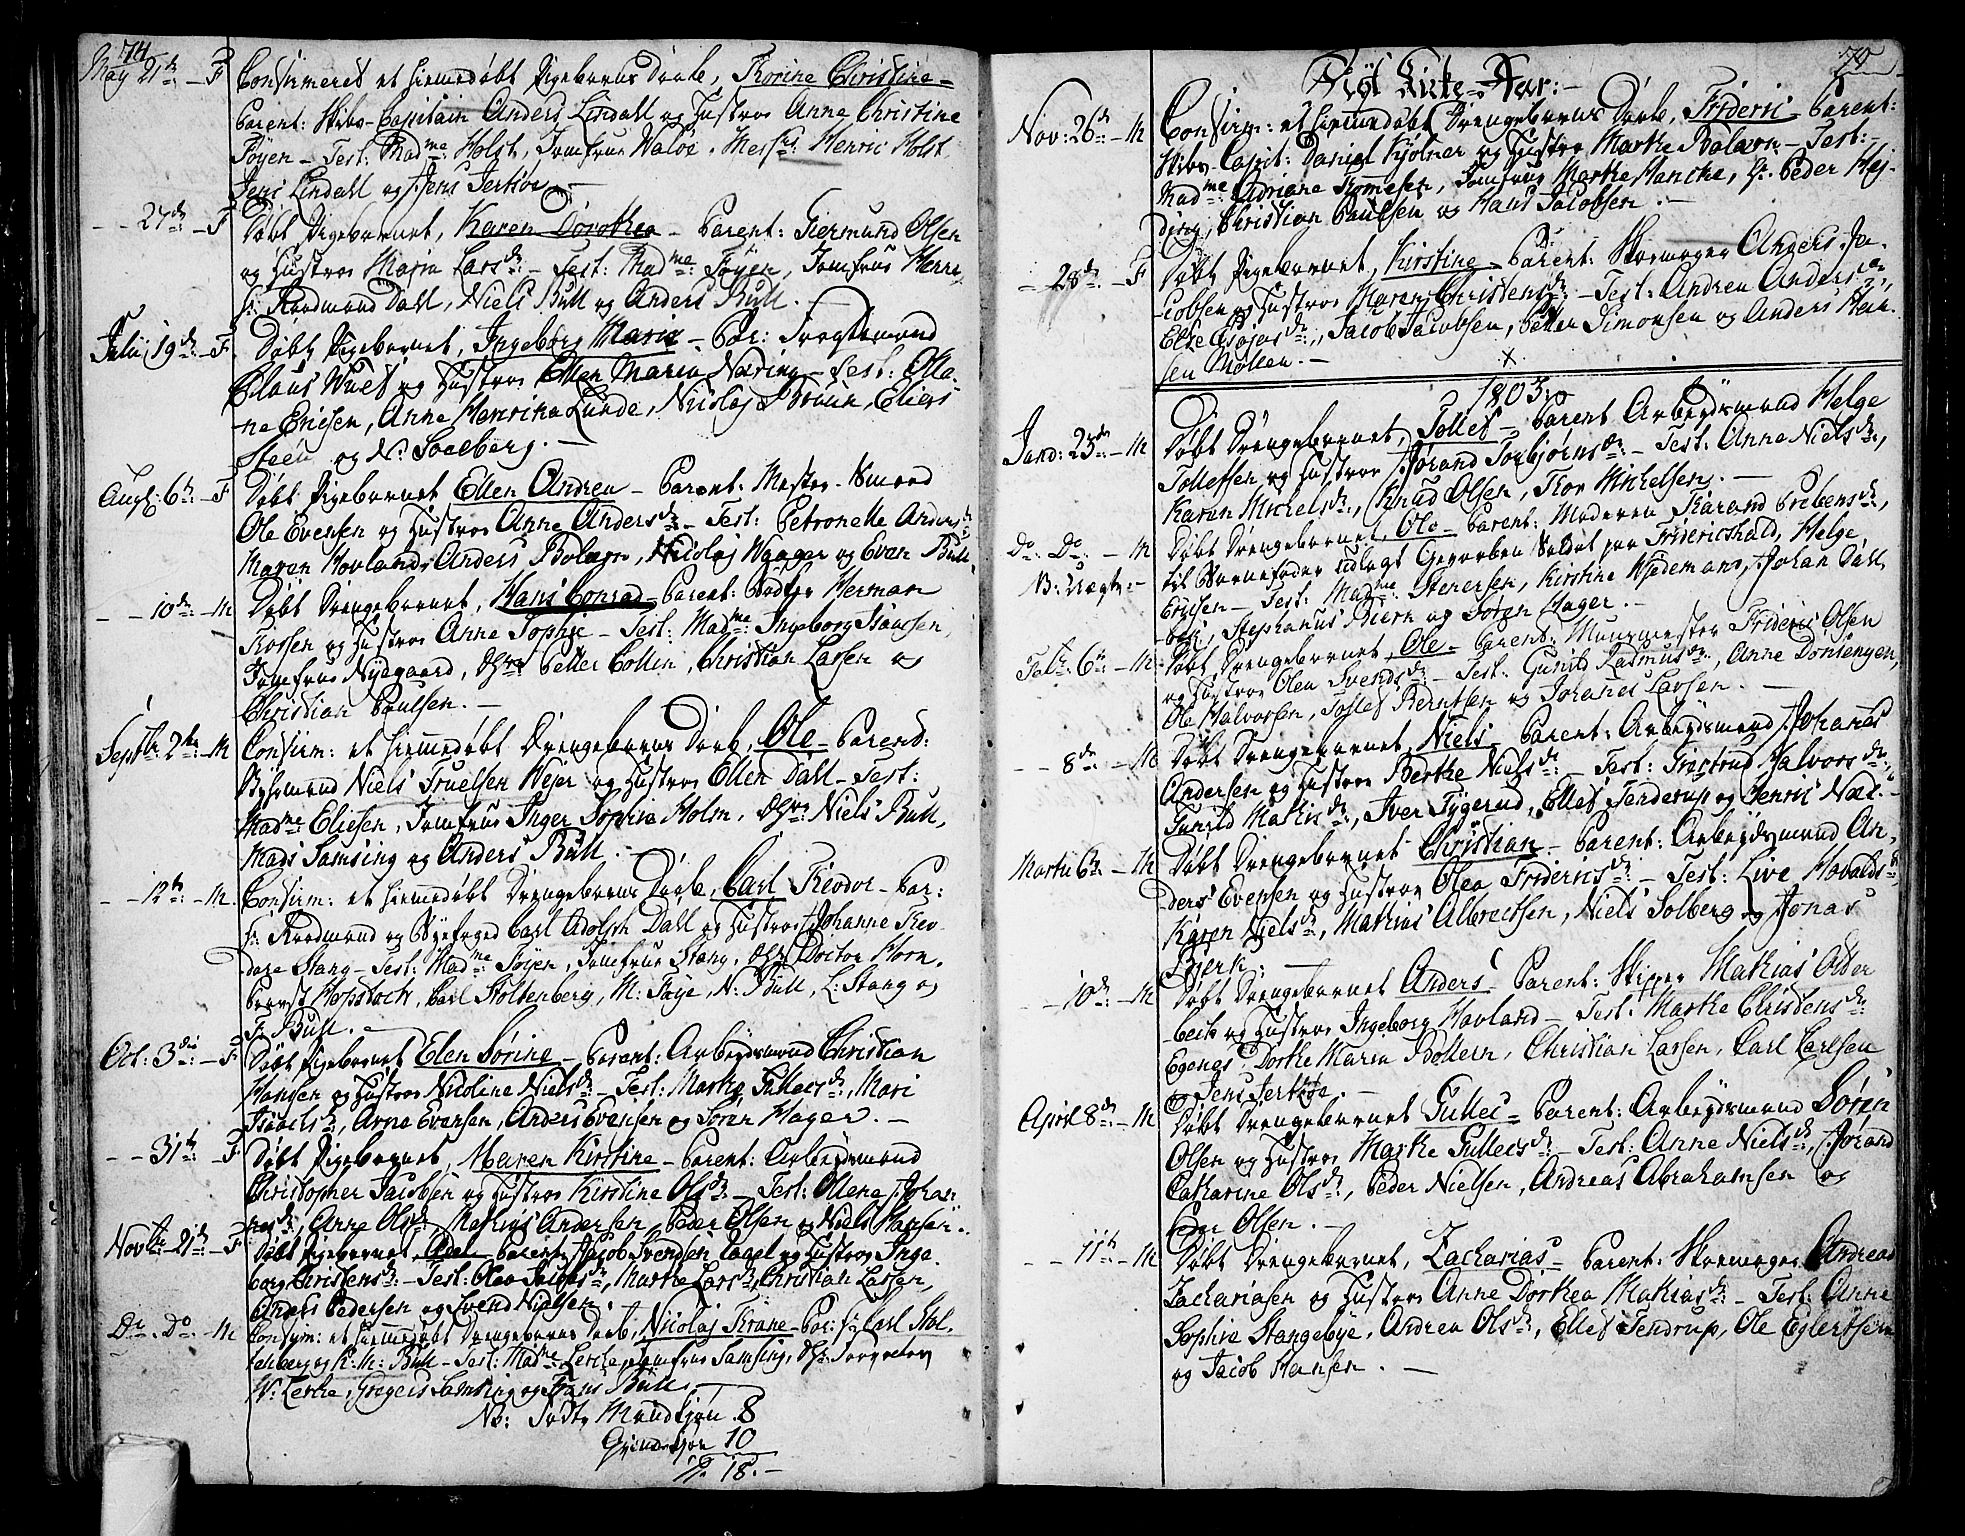 74.
May 21de: – F Confirmeret et hiemmedøbt Pigebarns Daab, Thorine Christine –
Parent: Skibs-Capitain Anders Lindall og Hustroe Anne Christine
Föyen – Test: Madme: Holst, Jomfrue Waløe, Messrs: Henric Holst
Jens Lindall og Jens Jersöe. –
– – 27de: – F Døbt Pigebarnet, Karen Dorothea – Parent: Giermund Olsen
og Hustroe Maria Larsdr: – Test: Madme: Föyen, Jomfrue
Sr: Raadmand Dall, Niels Bull og Anders Bull. –
Julii 19de: – F Døbt Pigebarnet, Ingeborg Marie – Par:
Claus Wues og Hustroe Ellen Maria Næring – Test: Olla-
ne Ericsen, Anne Henricha Lunde, Nicolaj Bruun, Eliers
Steen og N: Soelberg. –
Augt: 6te: – F Døbt Pigebarnet Ellen Andrea – Parent: Mester-Smed
Ole Evensen og Hustroe Anne Andersdr: – Test: Petronelle Andersdr:
Maren Hovland, Anders Bolærn, Nicolaj Waager og Even Bull.
– – 10de: – M Døbt Drengebarnet, Hans Conrad – Parent: Herman
Rossen og Hustroe Anne Sophie – Test: Madme: Ingeborg Isaacsen,
Jomfrue Nyegaard, Hrr: Petter Collin, Christian Larsen og
Christian Paulsen. –
Septbr: 2den: – M Confirm: et hiemmedøbt Drengebarns Daab, Ole – Parent:
Niels Truelsen Wejer og Hustroe Ellen Dall – Test:
Madme Eliesen, Jomfrue Inger Sophia Holm, Hrr: Niels Bull,
Mads Samsing og Anders Bull. –
– – 12te: – M. Confirm: et hiemmedøbt Drengebarns Daab, Carl Theodor – Par:
Sr: Raadmand og Byefoged Carl Adolph Dall og Hustroe Johanne Theo-
dora Stang – Test: Madme: Föyen, Jomfrue Stang, Hrr: Doctor Horn,
Provst Hopstock, Carl Stoltenberg, M: Föye, N: Bull, L: Stang og
F: Bull. –
Oct: 3die: – F Døbt Pigebarnet Elen Sørine – Parent: Arbeydsmand Christian
Hansen og Hustroe Nicoline Nielsdr: – Test: Marthe Tullecsdr:, Mari
Isaachsdr:, Arne Evensen, Anders Evensen og Søren Hager. –
– – 31te: – F Døbt Pigebarnet, Maren Kirstine – Parent: Arbeydsmand
Christopher Jacobsen og Hustroe Kirstine Olsdr: – Test: Ollene Johan-
nesdr:, Anne Olsdr: Mathias Andersen Peder Olsen og Niels Hansen. –
Novbr: 21de: – F Døbt Pigebarnet Adel Parent: Jacob Svendsen og Hustroe Inge-
borg Christensdr: – Test: Olea, Marthe Larsdr: Christian Larsen,
Anders Pedersen og Svend Nielsen.
Do: Do: – M Confirm: et hiemmedøbt Drengebarns Daab, Nicolaj Krane – Par: Sr: Carl Stol-
tenberg og K: M: Bull – Test: Madme: Lerche, Jomfrue Samsing, Hrr:
W: Lerche, Gregers Samsing og Hans Bull. –
NB: Fødte Mandkjøn 8
Qvindekjøn 10
18. –
75
Nyt Kirke-Aar: –
Nov: 26de: – M Confirm: et hiemmedøbt Drengebarns Daab, Frideric – Parent:
Skibs-Capit: Daniel Kjølner og Hustroe Marthe Bolærn – Test: –
Madme: Adriane Thomesen, Jomfrue Marthe Hancke, Sr: Peder Hej-
ding, Christian Paulsen og Hans Jacobsen. –
– 28de: – F Døbt Pigebarnet, Kirstine – Parent: Skoemager Anders Ja-
cobsen og Hustroe Maren Christensdr: – Test: Andrea Andersdr:,
Else, Jacob Jacobsen, Petter Simonsen og Anders Han-
sen Møllen. –
1803.
Janv: 23de: – M Døbt Drengebarnet, Tollef – Parent Arbeydsmand Helge
Tollefsen og Hustroe Jørand Torbjørnsdr: – Test: Anne Nielsdr:,
Karen Michelsdr:, Knud Olsen, Thor Michelsen. –
Do: Do: – M Døbt Drengebarnet, Ole – Parent: Moderen Karand Prebensdr:,
N: Uægte: – til Barnefader udlagt Gevorben Soldat paa Fridericshald, Helge
Ericsen – Test: Madme: Stenersen, Kirstine Wedemans, Johan Dall
, Stephanus Biørn og Søren Hager. –
Febr: 6te: – M. Døbt Drengebarnet, Ole – Parent: Muurmester Frideric Olsen
og Hustroe Olea Svendsdr: – Test: Gunild Rasmusdr:, Anne Dontengen,
Ole Halvorsen, Tollef Berntsen og Johanes Larsen. –
– – 8de: – M Døbt Drengebarnet, Niels – Parent: Arbeydsmand Johanes
Andersen og Hustroe Berthe Nielsdr: – Test: Halvorsdr:,
Gunild Mathisdr:, Iver Tygerud, Ellef Tenderup og Henric Næs. –
Martii 6te: – M Døbt Drengebarnet Christian – Parent: Arbeydsmand An-
ders Evensen og Hustroe Olea Fridericsdr: – Test: Live Hovaldsdr:
Karen Nielsdr:, Mathias Albrectsen, Niels Solberg og Jonas
Bjerk: –
– – 10de: – M Døbt Drengebarnet Anders – Parent: Skiper Mathias Ader
beck og Hustroe Ingeborg Havland – Test: Marthe Christensdr:
Egenes, Dorthe Maria Bollern, Christian Larsen, Carl Carlsen
og Jens Jersøe. –
April 8de: – M Døbt Drengebarnet Tullec – Parent: Arbeydsmand Søren
Olsen og Hustroe Marthe Tullecsdr: – Test: Anne Nielsdr:, Jørand
Catharine Olsdr:, Peder Nielsen, Andreas Abrahamsen og
Peer Olsen. –
– – 11te: – M Døbt Drengebarnet, Zacharias – Parent: Skoemager Andreas
Zachariasen og Hustroe Anne Dorthea Mathiasdr: – Test: Anne
Sophie Stangebye, Andrea Olsdr:, Ellef Tendrup, Ole Eglertsen
og Jacob Hansen. –